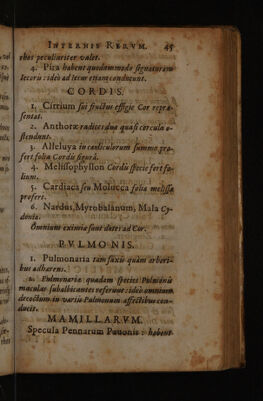 INTERNIS RERVM. 45
rbos peculiariter valet.
4. Pixa habent quodammodo signaturam
Iecoris: ideò ad Iecur etiam conducunt.
CORDIS.
1. Citrium sui fructus effigie Cor repræ-
sentat.
2. Anthoræ radices duæ quasi corcula o-
stendunt.
3. Alleluya in cauliculorum summo pro-
fert folia Cordis figurâ.
4. Melissophyllon Cordis specie fert fo-
lium.
5. Cardiaca seu Molucca folia melissæ
profert.
6. Nardus, Myrobalanum, Mala Cy-
donia.
Omnium eximiæ sunt dotes ad Cor.
PVLMONIS.
1. Pulmonaria tam saxis quàm arbori-
bus adhærens.
2. Pulmonariæ quædam species Pulmonis
maculas subalbicantes referunt: ideò omnium
decoctum in variis Pulmonum affectibus con-
ducit.
MAMILLARVM.
Specula Pennarum Pauonis: habent